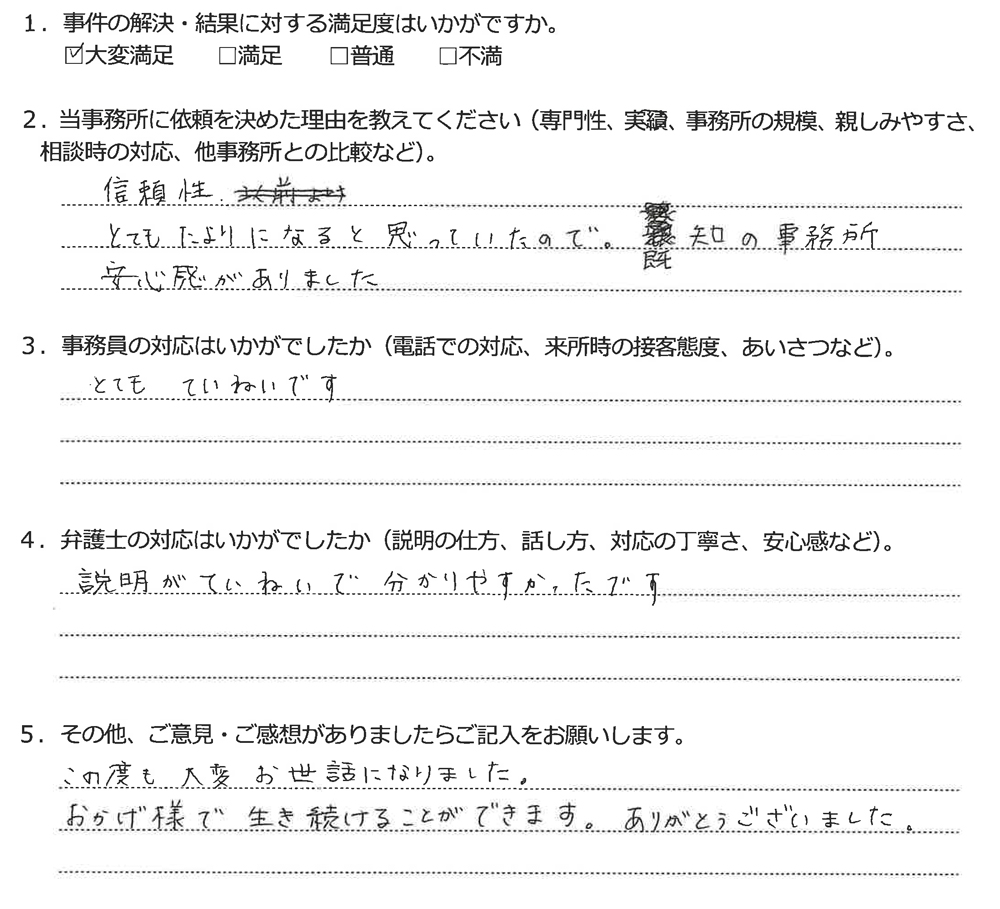 1．事件の解決・結果に対する満足度はいかがですか。
☑大変満足　□満足　□普通　□不満
2．当事務所に依頼を決めた理由を教えてください（専門性、実績、事務所の規模、親しみやすさ、
相談時の対応、他事務所との比較など）。
信頼性.
とてもたよりになると思っていたので。既知の事務所
安心感がありました
3．事務員の対応はいかがでしたか（電話での対応、来所時の接客態度、あいさつなど）。
とても ていねいです
4．弁護士の対応はいかがでしたか（説明の仕方、話し方、対応の丁寧さ、安心感など）。
説明がていねいで 分かりやすかったです
5．その他、ご意見・ご感想がありましたらご記入をお願いします。
この度も 大変 お世話になりました。
おかげ様で 生き続けることができます。ありがとうございました。